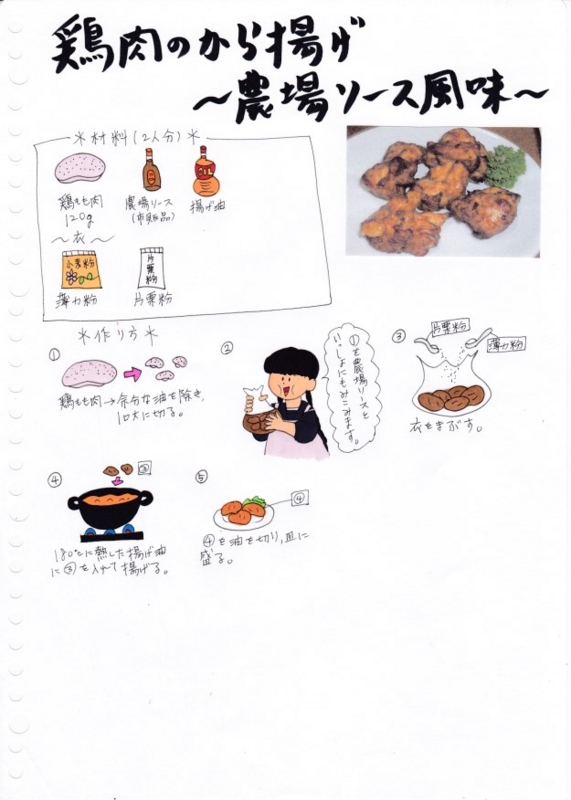 鶏肉のから揚げ
～農場ソース風味～
＊材料(2人分)＊
鶏もも肉
120g
農場ソース
(市販品)
OIL
揚げ油
～衣～
小麦粉
薄力粉
片栗粉
片栗粉
＊作り方＊
①
鶏もも肉→余分な油を除き、
一口大に切る。
②
①を農場ソースと
いっしょにもみこみます。
③
片栗粉
薄力粉
衣をまぶす。
④
③
180℃に熱した揚げ油
に③を入れて揚げる。
⑤
④
④を油を切り、皿に
盛る。